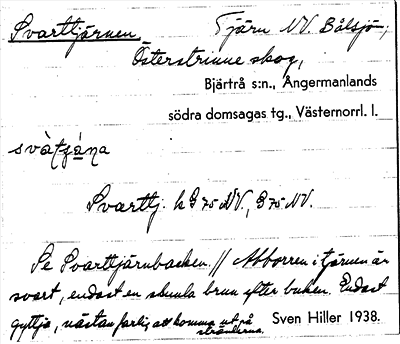 Svarttjärnen Tjärn NV. Bålsjön,
Österstrinne skog,
Bjärtrå s:n., Ångermanlands
södra domsagas tg., Västernorrl. l.
Svarttj. k G 75 NV., G 75 NV.
Se Svarttjärnbacken. // Abborren i tjärnen är
svart, endast en skumla brun efter buken. Endast
gyttja, nästan farlig att komma ut på
stränderna. Sven Hiller 1938.